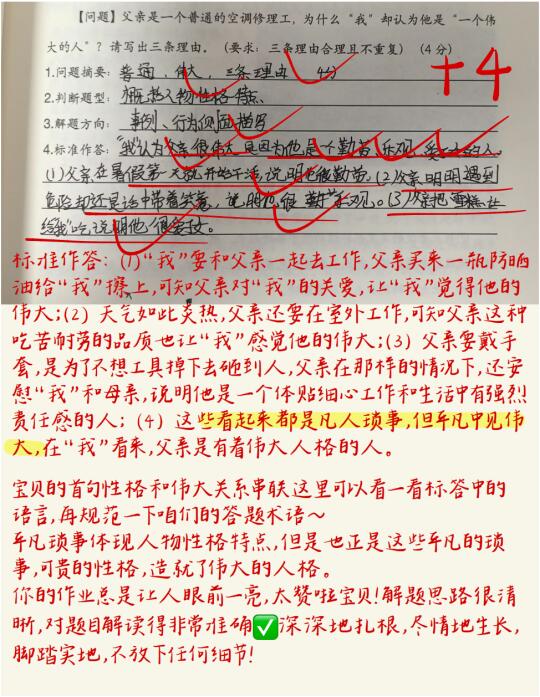 【问题】父亲是一个普通的空调修理工，为什么“我”却认为他是“一个伟
大的人”？请写出三条理由。（要求：三条理由合理且不重复）（4分）
+4
1.问题摘要：普通，伟大，三条理由 4分
2.判断题型：概括人物性格特点
3.解题方向：事例、行为侧面描写
4.标准作答：“我”认为父亲很伟大是因为他是个勤劳、乐观、爱子女的人。
(1)父亲在暑假第一天就开始干活，说明他很勤劳。(2)父亲明明遇到
危险却还是话中带着笑意，说明他很乐观。(3)父亲把雪糕让
给“我”吃，说明他很爱子女。
标准作答：(1)“我”要和父亲一起去工作，父亲买来一瓶防晒
油给“我”擦上，可知父亲对“我”的关爱，让“我”觉得他的
伟大；(2) 天气如此炎热，父亲还要在室外工作，可知父亲这种
吃苦耐劳的品质也让“我”感觉他的伟大；(3) 父亲要戴手
套，是为了不想工具掉下去砸到人，父亲在那样的情况下，还安
慰“我”和母亲，说明他是一个体贴细心工作和生活中有强烈
责任感的人；(4) 这些看起来都是凡人琐事，但平凡中见伟
大，在“我”看来，父亲是有着伟大人格的人。
宝贝的首句性格和伟大关系串联这里可以看一看标答中的
语言，再规范一下咱们的答题术语～
平凡琐事体现人物性格特点，但是也正是这些平凡的琐
事，可贵的性格，造就了伟大的人格。
你的作业总是让人眼前一亮，太赞啦宝贝！解题思路很清
晰，对题目解读得非常准确✅深深地扎根，尽情地生长，
脚踏实地，不放下任何细节！